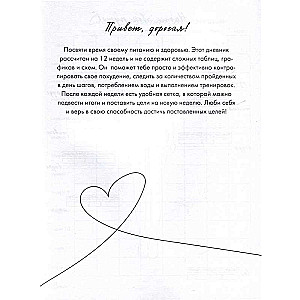 Привет, дорогая!
Посвяти время своему питанию и здоровью. Этот дневник
рассчитан на 12 недель и не содержит сложных таблиц, гра-
фиков и схем. Он поможет тебе просто и эффективно контро-
лировать свое похудение, следить за количеством пройденных
в день шагов, потреблением воды и выполнением тренировок.
После каждой недели есть удобная сетка, в которой можно
подвести итоги и поставить цели на новую неделю. Люби себя
и верь в свою способность достичь поставленных целей!